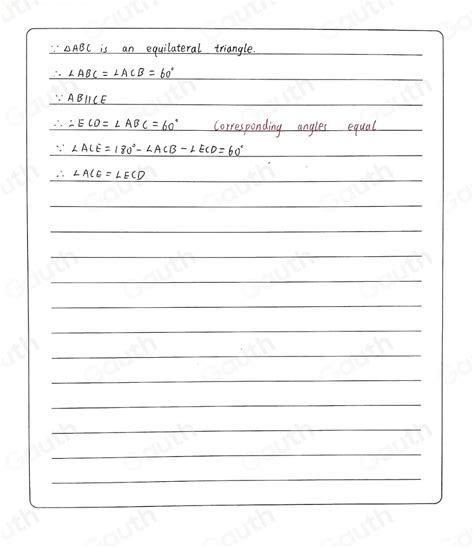 ∵ △ABC is an equilateral triangle.
∴ ∠ABC = ∠ACB = 60°
∵ AB∥CE
∴ ∠ECD = ∠ABC = 60° Corresponding angles equal
∵ ∠ACE = 180° - ∠ACB - ∠ECD = 60°
∴ ∠ACE = ∠ECD
Gauth